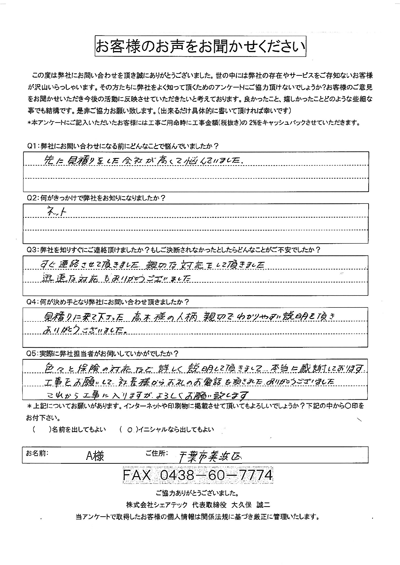 お客様のお声をお聞かせください
この度は弊社にお問い合わせを頂き誠にありがとうございました。世の中には弊社の存在やサービスをご存知ないお客様
が沢山いらっしゃいます。その方たちに弊社をよく知って頂くためのアンケートにご協力頂けないでしょうか？お客様のご意見
をお聞かせいただき今後の活動に反映させていただきたいと考えております。良かったこと、嬉しかったことどのような些細な
事でも結構です。是非ご協力お願い致します。（出来るだけ具体的に書いて頂ければ幸いです）
*本アンケートにご記入いただいたお客様には工事ご用命時に工事金額（税抜き）の2%をキャッシュバックさせていただきます。
Q1：弊社にお問い合わせになる前にどんなことで悩んでいましたか？
先に見積りをした会社が高くて悩んでいました。
Q2：何がきっかけで弊社をお知りになりましたか？
ネット
Q3：弊社を知りすぐにご連絡頂けましたか？もしご決断されなかったとしたらどんなことがご不安でしたか？
すぐ連絡させて頂きました 親切な対応をして頂きました
迅速な対応もありがとうございました
Q4：何が決め手となり弊社にお問い合わせ頂きましたか？
見積りに来て下さった 高木様の人柄、親切でわかりやすい説明を頂き
ありがとうございました。
Q5：実際に弊社担当者がお伺いしていかがでしたか？
色々と保険の対応など 詳しく説明して頂きまして、本当に感謝しております。
工事をお願いして、社長様からお礼のお電話も頂きました ありがとうございました
これから工事に入りますが よろしくお願い致します
*上記についてお願いがあります。インターネットや印刷物に掲載させて頂いてもよろしいでしょうか？下記の中から〇印を
お付下さい。
（　）名前を出してもよい　（ O ）イニシャルなら出してもよい
お名前： A様 ご住所： 千葉市美浜区
FAX 0438-60-7774
ご協力ありがとうございました。
株式会社シェアテック 代表取締役 大久保 誠二
当アンケートで取得したお客様の個人情報は関係法規に基づき厳正に管理いたします。